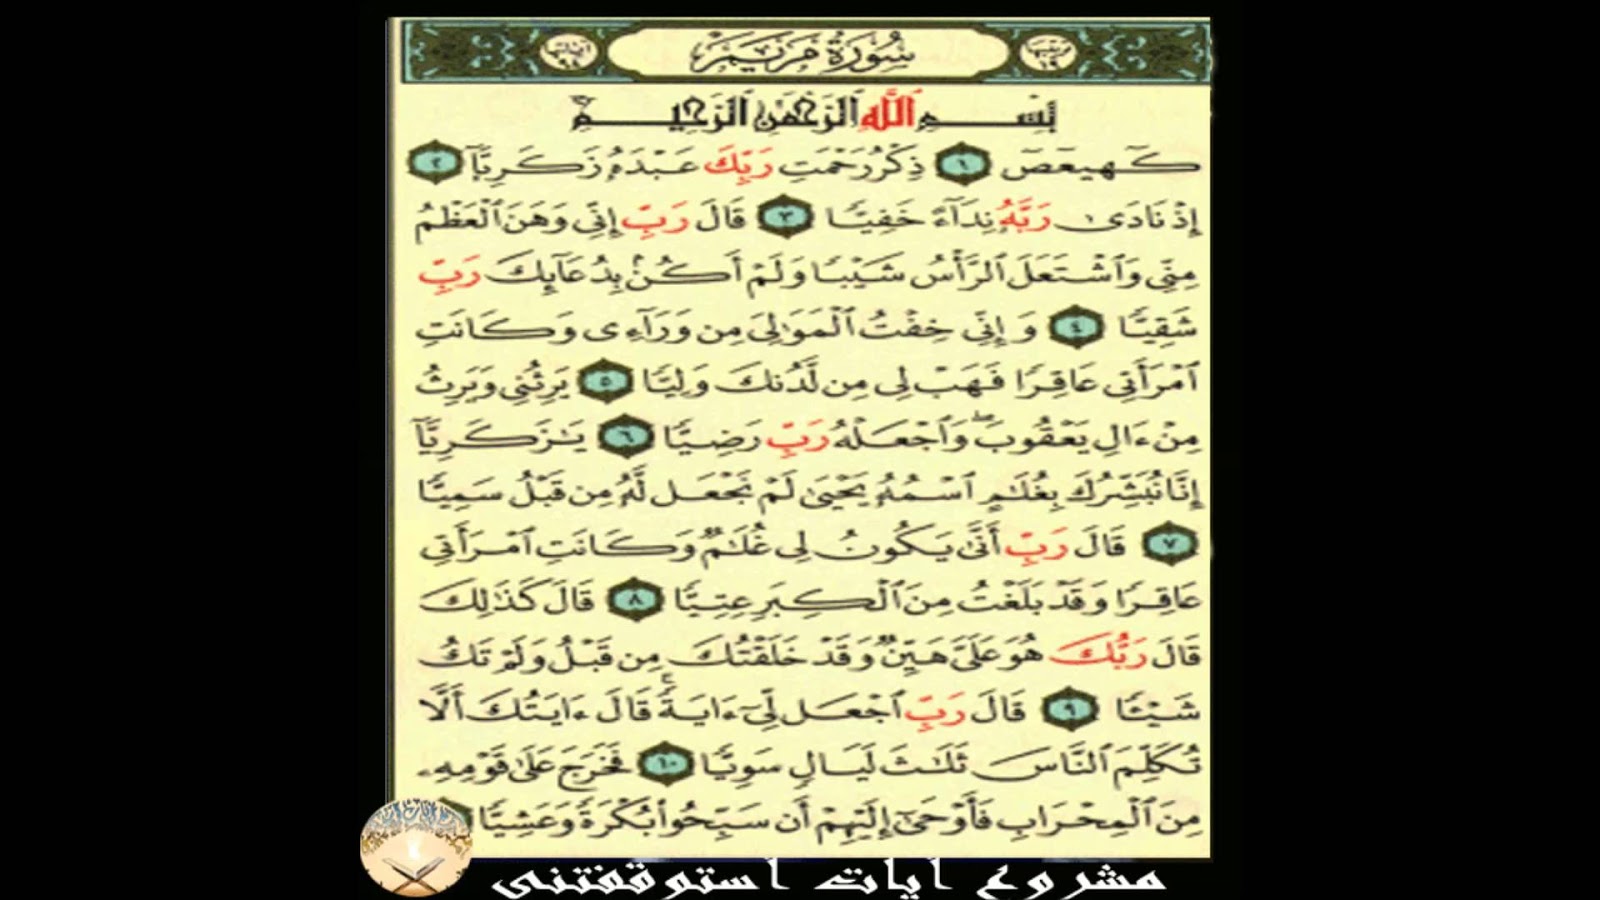 ترتيبها ١٩ سُورَةُ مَرْيَمَ آياتها ٩٨
بِسْمِ ٱللَّهِ ٱلرَّحْمَٰنِ ٱلرَّحِيمِ
كٓهيعٓصٓ ١ ذِكْرُ رَحْمَتِ رَبِّكَ عَبْدَهُۥ زَكَرِيَّآ ٢
إِذْ نَادَىٰ رَبَّهُۥ نِدَآءً خَفِيًّا ٣ قَالَ رَبِّ إِنِّى وَهَنَ ٱلْعَظْمُ
مِنِّى وَٱشْتَعَلَ ٱلرَّأْسُ شَيْبًا وَلَمْ أَكُنۢ بِدُعَآئِكَ رَبِّ
شَقِيًّا ٤ وَإِنِّى خِفْتُ ٱلْمَوَٰلِىَ مِن وَرَآءِى وَكَانَتِ
ٱمْرَأَتِى عَاقِرًا فَهَبْ لِى مِن لَّدُنكَ وَلِيًّا ٥ يَرِثُنِى وَيَرِثُ
مِنْ ءَالِ يَعْقُوبَ ۖ وَٱجْعَلْهُ رَبِّ رَضِيًّا ٦ يَٰزَكَرِيَّآ
إِنَّا نُبَشِّرُكَ بِغُلَٰمٍ ٱسْمُهُۥ يَحْيَىٰ لَمْ نَجْعَل لَّهُۥ مِن قَبْلُ سَمِيًّا
٧ قَالَ رَبِّ أَنَّىٰ يَكُونُ لِى غُلَٰمٌ وَكَانَتِ ٱمْرَأَتِى
عَاقِرًا وَقَدْ بَلَغْتُ مِنَ ٱلْكِبَرِ عِتِيًّا ٨ قَالَ كَذَٰلِكَ
قَالَ رَبُّكَ هُوَ عَلَىَّ هَيِّنٌ وَقَدْ خَلَقْتُكَ مِن قَبْلُ وَلَمْ تَكُ
شَيْـًٔا ٩ قَالَ رَبِّ ٱجْعَل لِّىٓ ءَايَةً ۚ قَالَ ءَايَتُكَ أَلَّا
تُكَلِّمَ ٱلنَّاسَ ثَلَٰثَ لَيَالٍ سَوِيًّا ١٠ فَخَرَجَ عَلَىٰ قَوْمِهِۦ
مِنَ ٱلْمِحْرَابِ فَأَوْحَىٰٓ إِلَيْهِمْ أَن سَبِّحُوا۟ بُكْرَةً وَعَشِيًّا
مشروع آيات استوقفتنى